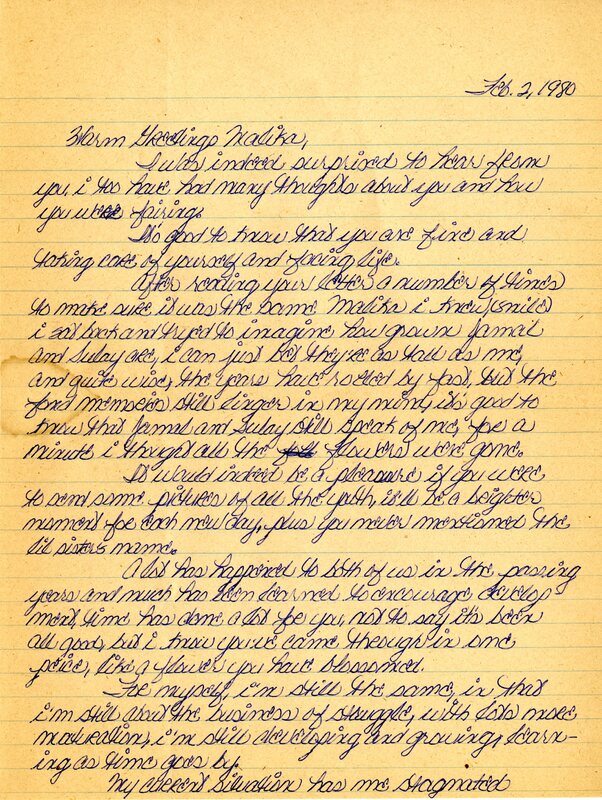 Feb. 2, 1980
Warm Greetings Malika,
I was indeed surprized to hear from
you, i too have had many thoughts about you and how
you were fairing.
It's good to know that you are fine and
taking care of yourself and facing life.
After reading your letter a number of times
to make sure it was the same Malika i knew (smile)
i sat back and tryed to imagine how grown Jamal
and Sulay are, i can just bet they're as tall as me,
and quite wise, the years have rolled by fast, but the
fond memories still linger in my mind, it's good to
know that Jamal and Sulay still speak of me, for a
minute i thought all the flowers were gone.
It would indeed be a pleasure if you were
to send some pictures of all the youth, it'll be a brighter
moment for each new day, plus you never mentioned the
lil sister's name.
A lot has happened to both of us in the passing
years and much has been learned to encourage develop-
ment, time has done a lot for you, not to say it's been
all good, but i know you've came through in one
peice, like a flower you have blossomed.
For myself, i'm still the same, in that
i'm still about the business of struggle, with lots more
maturation, i'm still developing and growing, learn-
ing as time goes by.
My current situation has me stagnated